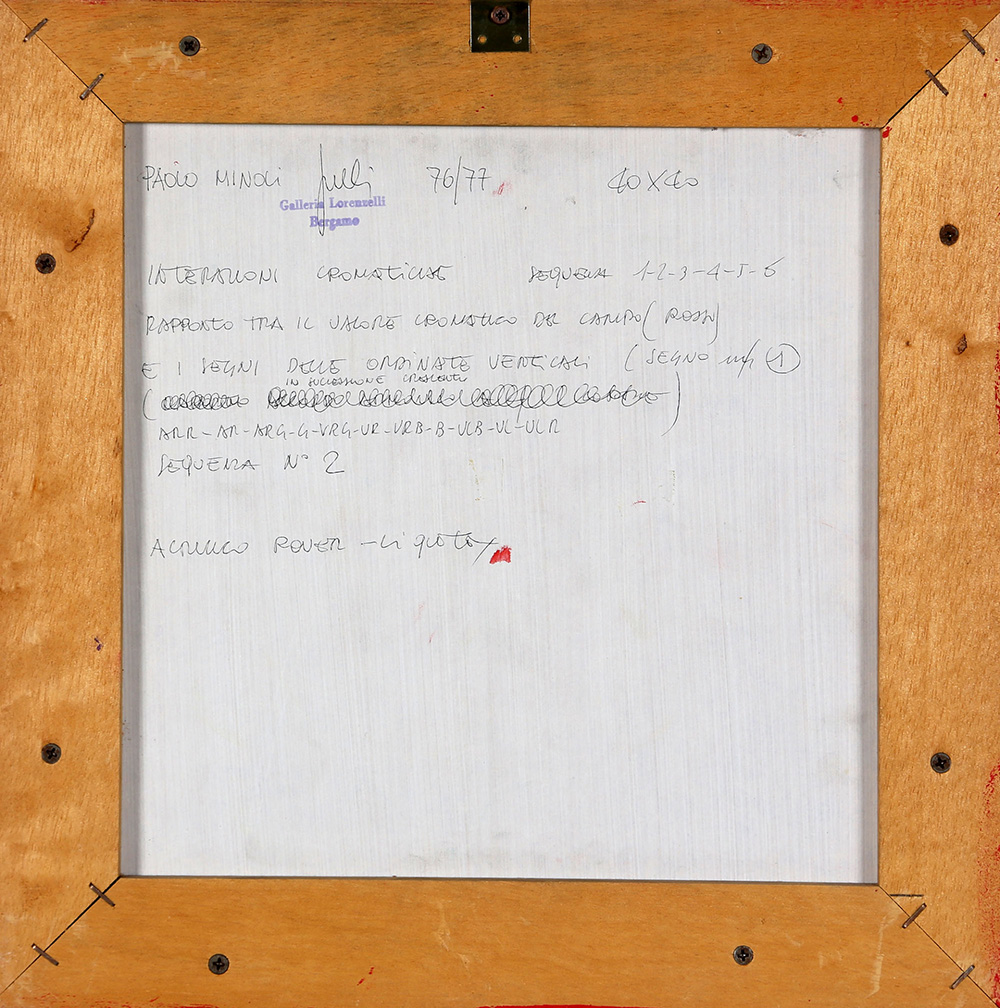 PAOLO MINOLI 76/77 40 X 40
Galleria Lorenzelli
Bergamo
INTERAZIONI CROMATICHE SEQUENZA 1-2-3-4-5-6
RAPPORTO TRA IL VALORE CROMATICO DEL CAMPO (ROSSO)
E I SEGNI DELLE ORDINATE VERTICALI (SEGNO 1)
IN SUCCESSIONE CRESCENTE
ARR-AR-ARG-G-VRG-VR-VRB-B-VLB-VL-VLR
SEQUENZA N° 2
ACRILICO